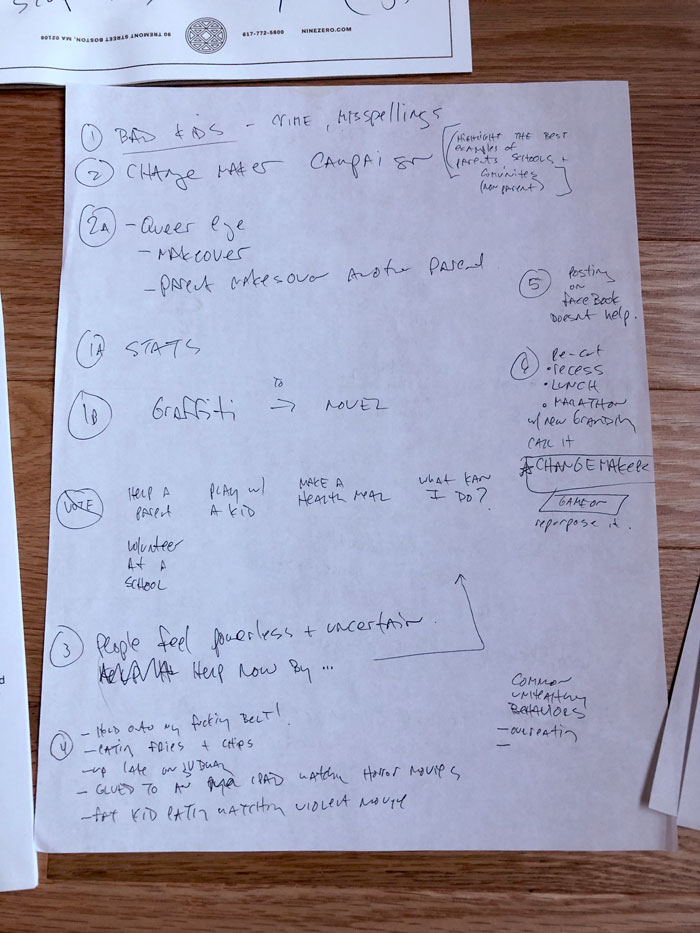 90 TREMONT STREET BOSTON, MA 02108
617-772-5800
NINEZERO.COM
1 BAD KIDS - CRIME, MISSPELLINGS
2 CHANGE MAKER CAMPAIGN
HIGHLIGHT THE BEST
EXAMPLES OF
PARENTS SCHOOLS +
COMUNITES
(NON PARENT)
2A - Queer eye
- MAKEOVER
- PARENT MAKESOVER ANOTHER PARENT
5 POSTING
ON
FACEBOOK
DOESNT HELP.
1A STATS
1B GRAFFITI TO → NOVEL
Re-cut
• RECESS
• LUNCH
• MARATHON
w/ new BRANDING
CALL IT
CHANGEMAKER
GAME ON
repurpose it.
VOTE
HELP A
PARENT
PLAY w/
A KID
MAKE A
HEALTH MEAL
WHAT KAN
I DO?
VOLUNTEER
AT A
SCHOOL
3 PEOPLE feel powerless + uncertain.
HELP NOW BY ...
COMMON
UNHEALTHY
BEHAVIORS
- OVEREATING
-
4
- HOLD ONTO MY fucking BELT!
- EATIN FRIES + CHIPS
- UP LATE ON SUBWAY
- GLUED TO AN IPAD WATCHIN HORROR MOVIES
- FAT KID EATIN WATCHIN VIOLENT MOVIE